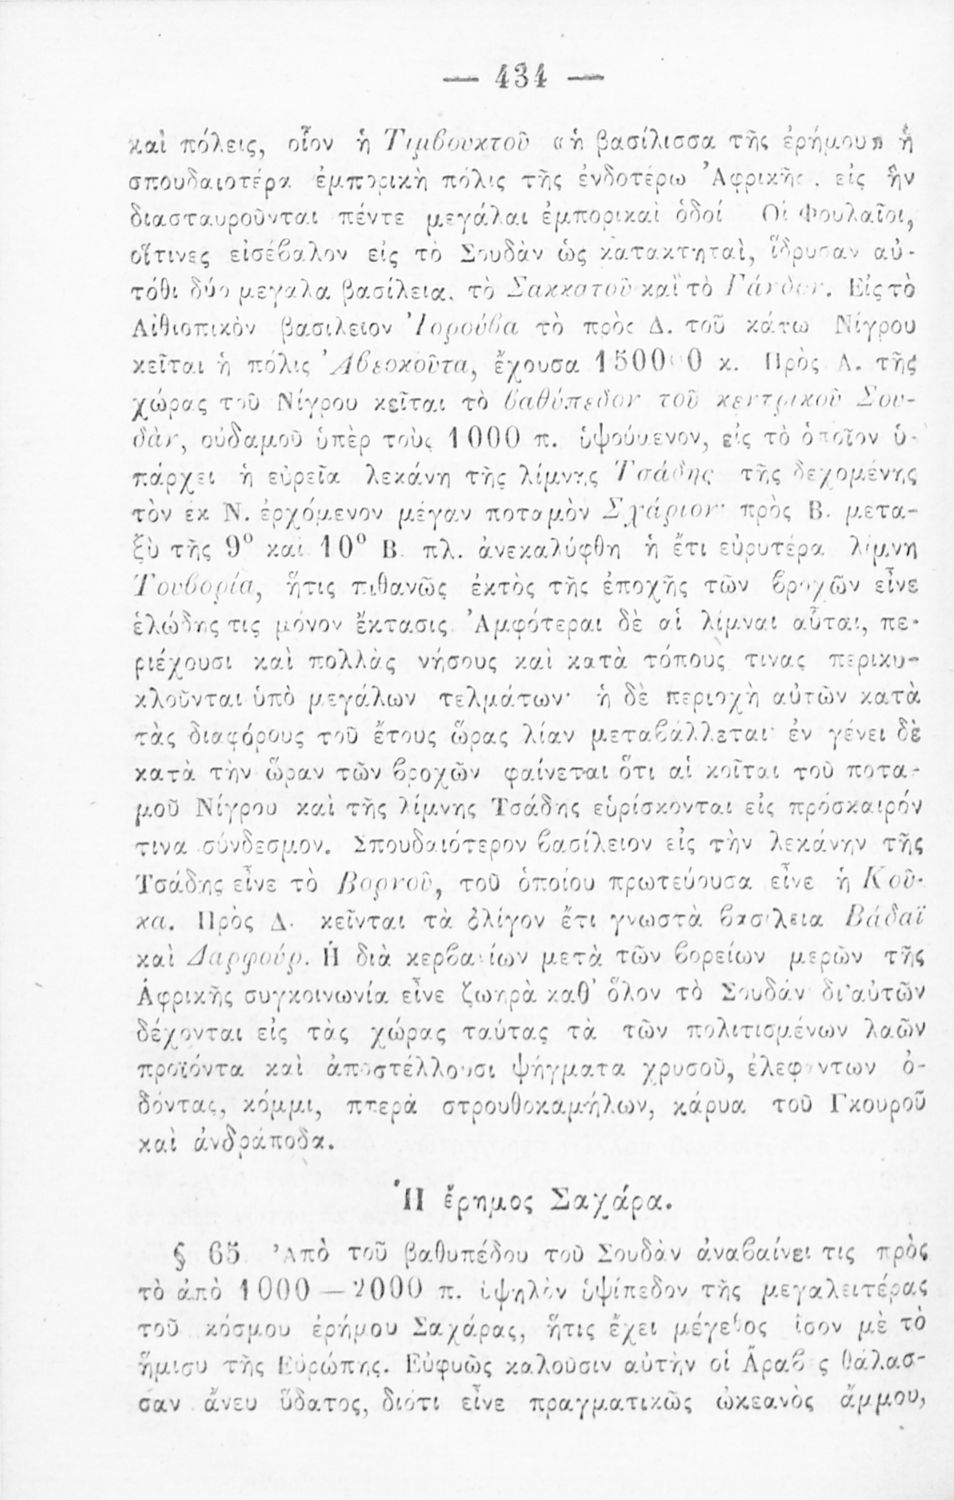 — 434 —
καὶ πόλεις, οἷον ἡ Τιμβουκτοῦ «ἡ βασίλισσα τῆς ἐρήμου» ἡ
σπουδαιοτέρα ἐμπορικὴ πόλις τῆς ἐνδοτέρω Ἀφρικῆς, εἰς ἣν
διασταυροῦνται πέντε μεγάλαι ἐμπορικαὶ ὁδοί Οἱ Φουλαῖοι,
οἵτινες εἰσέβαλον εἰς τὸ Σουδὰν ὡς κατακτηταὶ, ἵδρυσαν αὐ-
τόθι δύο μεγαλα βασίλεια, τὸ Σακκατοῦ καὶ τὸ Γάνδου. Εἰς τὸ
Αἰθιοπικὸν βασιλειον Ἰορούβα τὸ πρὸς Δ. τοῦ κάτω Νίγρου
κεῖται ἡ πόλις Ἀβεοκοῦτα, ἔχουσα 150000 κ. Πρὸς Α. τῆς
χώρας τοῦ Νίγρου κεῖται τὸ βαθύπεδον τοῦ κεντρικοῦ Σου-
δὰν, οὐδαμοῦ ὑπὲρ τοὺς 1000 π. ὑψούμενον, εἰς τὸ ὁποῖον ὑ-
πάρχει ἡ εὐρεῖα λεκάνη τῆς λίμνης Τσάδης τῆς δεχομένης
τὸν ἐκ Ν. ἐρχόμενον μέγαν ποταμὸν Σχάριον· πρὸς Β. μετα-
ξὺ τῆς 9° καὶ 10° Β. πλ. ἀνεκαλύφθη ἡ ἔτι εὐρυτέρα λίμνη
Τουβορία, ἥτις πιθανῶς ἐκτὸς τῆς ἐποχῆς τῶν βροχῶν εἶνε
ἑλώδης τις μόνον ἔκτασις Ἀμφότεραι δὲ αἱ λίμναι αὗται, πε-
ριέχουσι καὶ πολλὰς νήσους καὶ κατὰ τόπους τινας περικυ-
κλοῦνται ὑπὸ μεγάλων τελμάτων· ἡ δὲ περιοχὴ αὐτῶν κατὰ
τὰς διαφόρους τοῦ ἔτους ὥρας λίαν μεταβάλλεται· ἐν γένει δὲ
κατὰ τὴν ὥραν τῶν βροχῶν φαίνεται ὅτι αἱ κοῖται τοῦ ποτα-
μοῦ Νίγρου καὶ τῆς λίμνης Τσάδης εὑρίσκονται εἰς πρόσκαιρόν
τινα σύνδεσμον. Σπουδαιότερον βασίλειον εἰς τὴν λεκάνην τῆς
Τσάδης εἶνε τὸ Βορνοῦ, τοῦ ὁποίου πρωτεύουσα εἶνε ἡ Κοῦ-
κα. Πρὸς Δ. κεῖνται τὰ ὀλίγον ἔτι γνωστὰ βασίλεια Βάδαϊ
καὶ Δαρφούρ. Ἡ διὰ κερβανίων μετὰ τῶν βορείων μερῶν τῆς
Ἀφρικῆς συγκοινωνία εἶνε ζωηρὰ καθ' ὅλον τὸ Σουδάν· δι'αὐτῶν
δέχονται εἰς τὰς χώρας ταύτας τὰ τῶν πολιτισμένων λαῶν
προϊόντα καὶ ἀποστέλλουσι ψήγματα χρυσοῦ, ἐλεφάντων ὀ-
δόντας, κόμμι, πτερὰ στρουθοκαμήλων, κάρυα τοῦ Γκουροῦ
καὶ ἀνδράποδα.
Ἡ ἔρημος Σαχάρα.
§ 65 Ἀπὸ τοῦ βαθυπέδου τοῦ Σουδὰν ἀναβαίνει τις πρὸς
τὸ ἀπὸ 1000 — 2000 π. ὑψηλὸν ὑψίπεδον τῆς μεγαλειτέρας
τοῦ κόσμου ἐρήμου Σαχάρας, ἥτις ἔχει μέγεθος ἴσον μὲ τὸ
ἥμισυ τῆς Εὐρώπης. Εὐφυῶς καλοῦσιν αὐτὴν οἱ Ἄραβες θάλασ-
σαν ἄνευ ὕδατος, διότι εἶνε πραγματικῶς ὠκεανὸς ἄμμου,